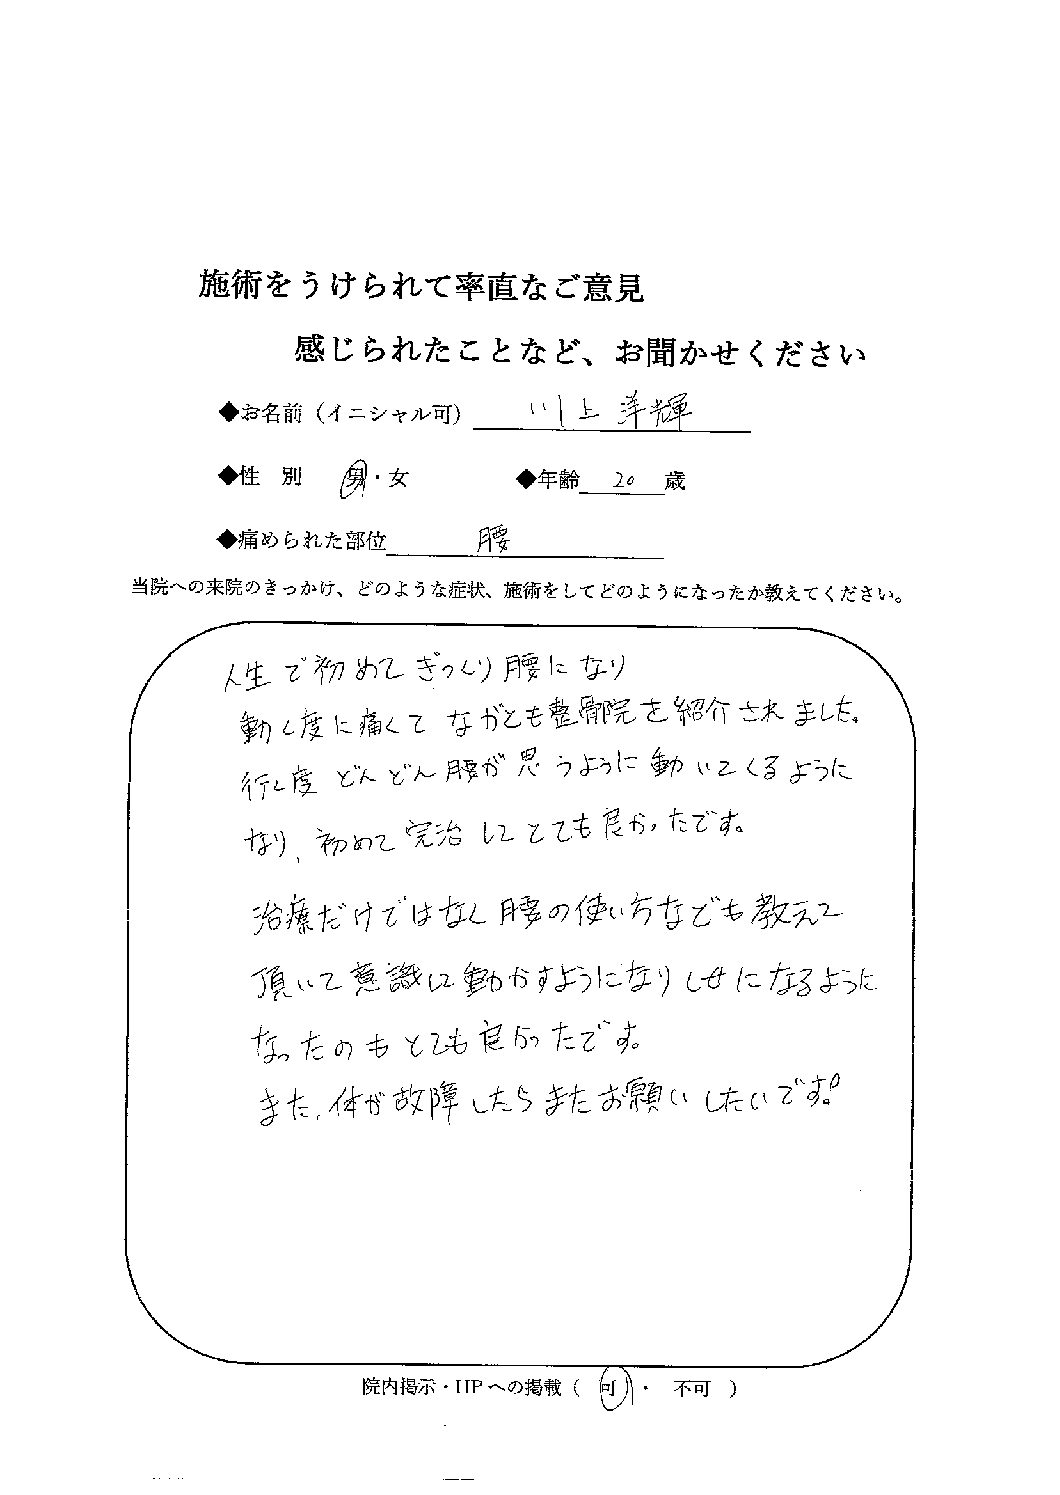 施術をうけられて率直なご意見
感じられたことなど、お聞かせください
◆お名前（イニシャル可） 川上 洋輝
◆性 別 男・女 ◆年齢 20 歳
◆痛められた部位 腰
当院への来院のきっかけ、どのような症状、施術をしてどのようになったか教えてください。
人生で初めてぎっくり腰になり
動く度に痛くて ながとも整骨院を紹介されました。
行く度 どんどん腰が思うように動いてくるように
なり、初めて完治してとても良かったです。
治療だけではなく腰の使い方なども教えて
頂いて意識して動かすようになりしせになるように
なったのもとても良かったです。
また、体が故障したらまたお願いしたいです。
院内掲示・HPへの掲載（ 可 ・ 不可 ）